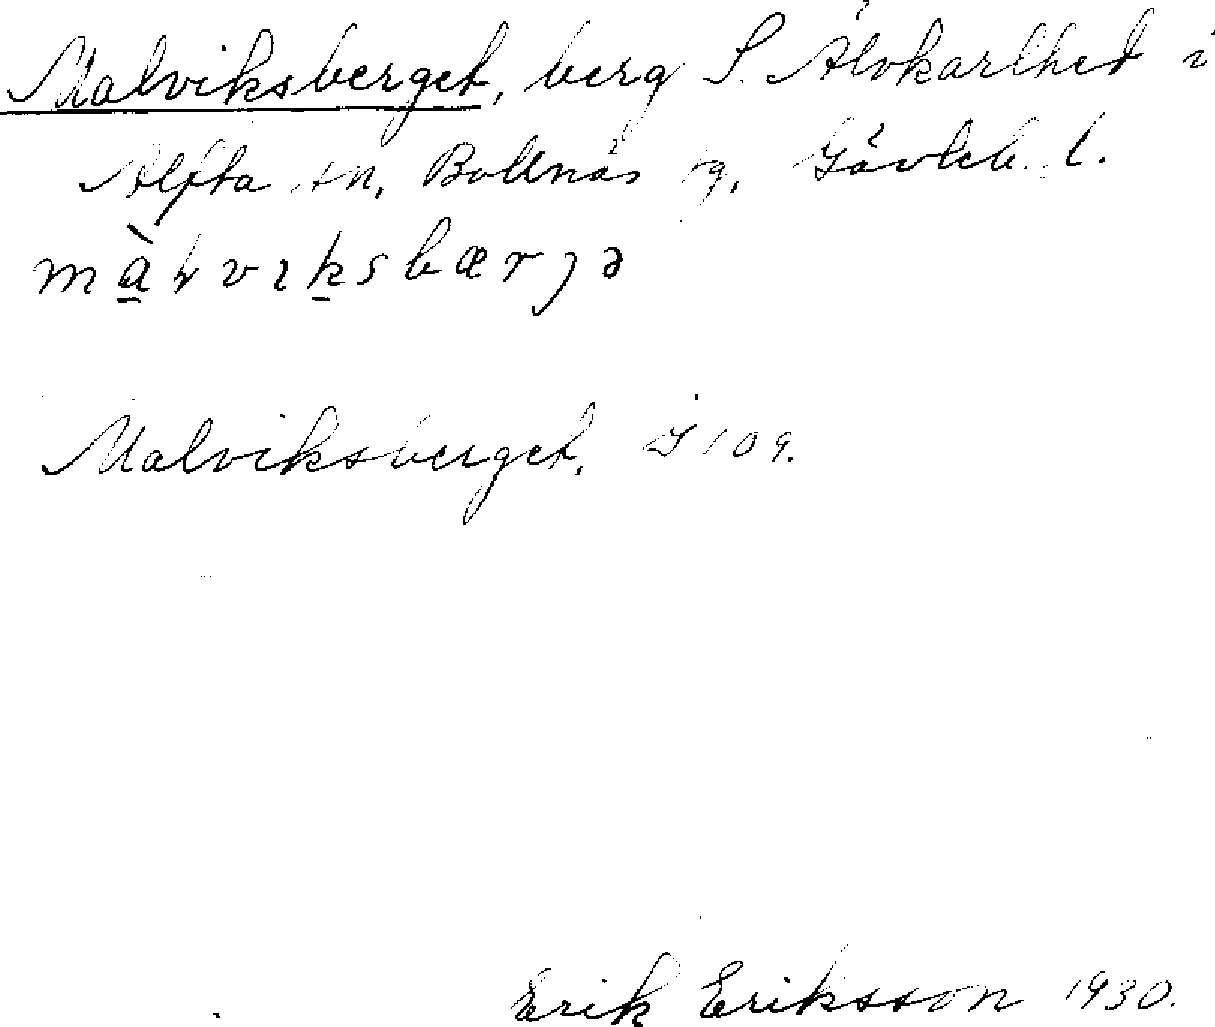 Malviksberget, berg S. Älvkarlhed i
Alfta sn, Bollnäs tg, Gävleb. l.
màɽvɩksbærjə
Malviksberget, J 109.
Erik Eriksson 1930.